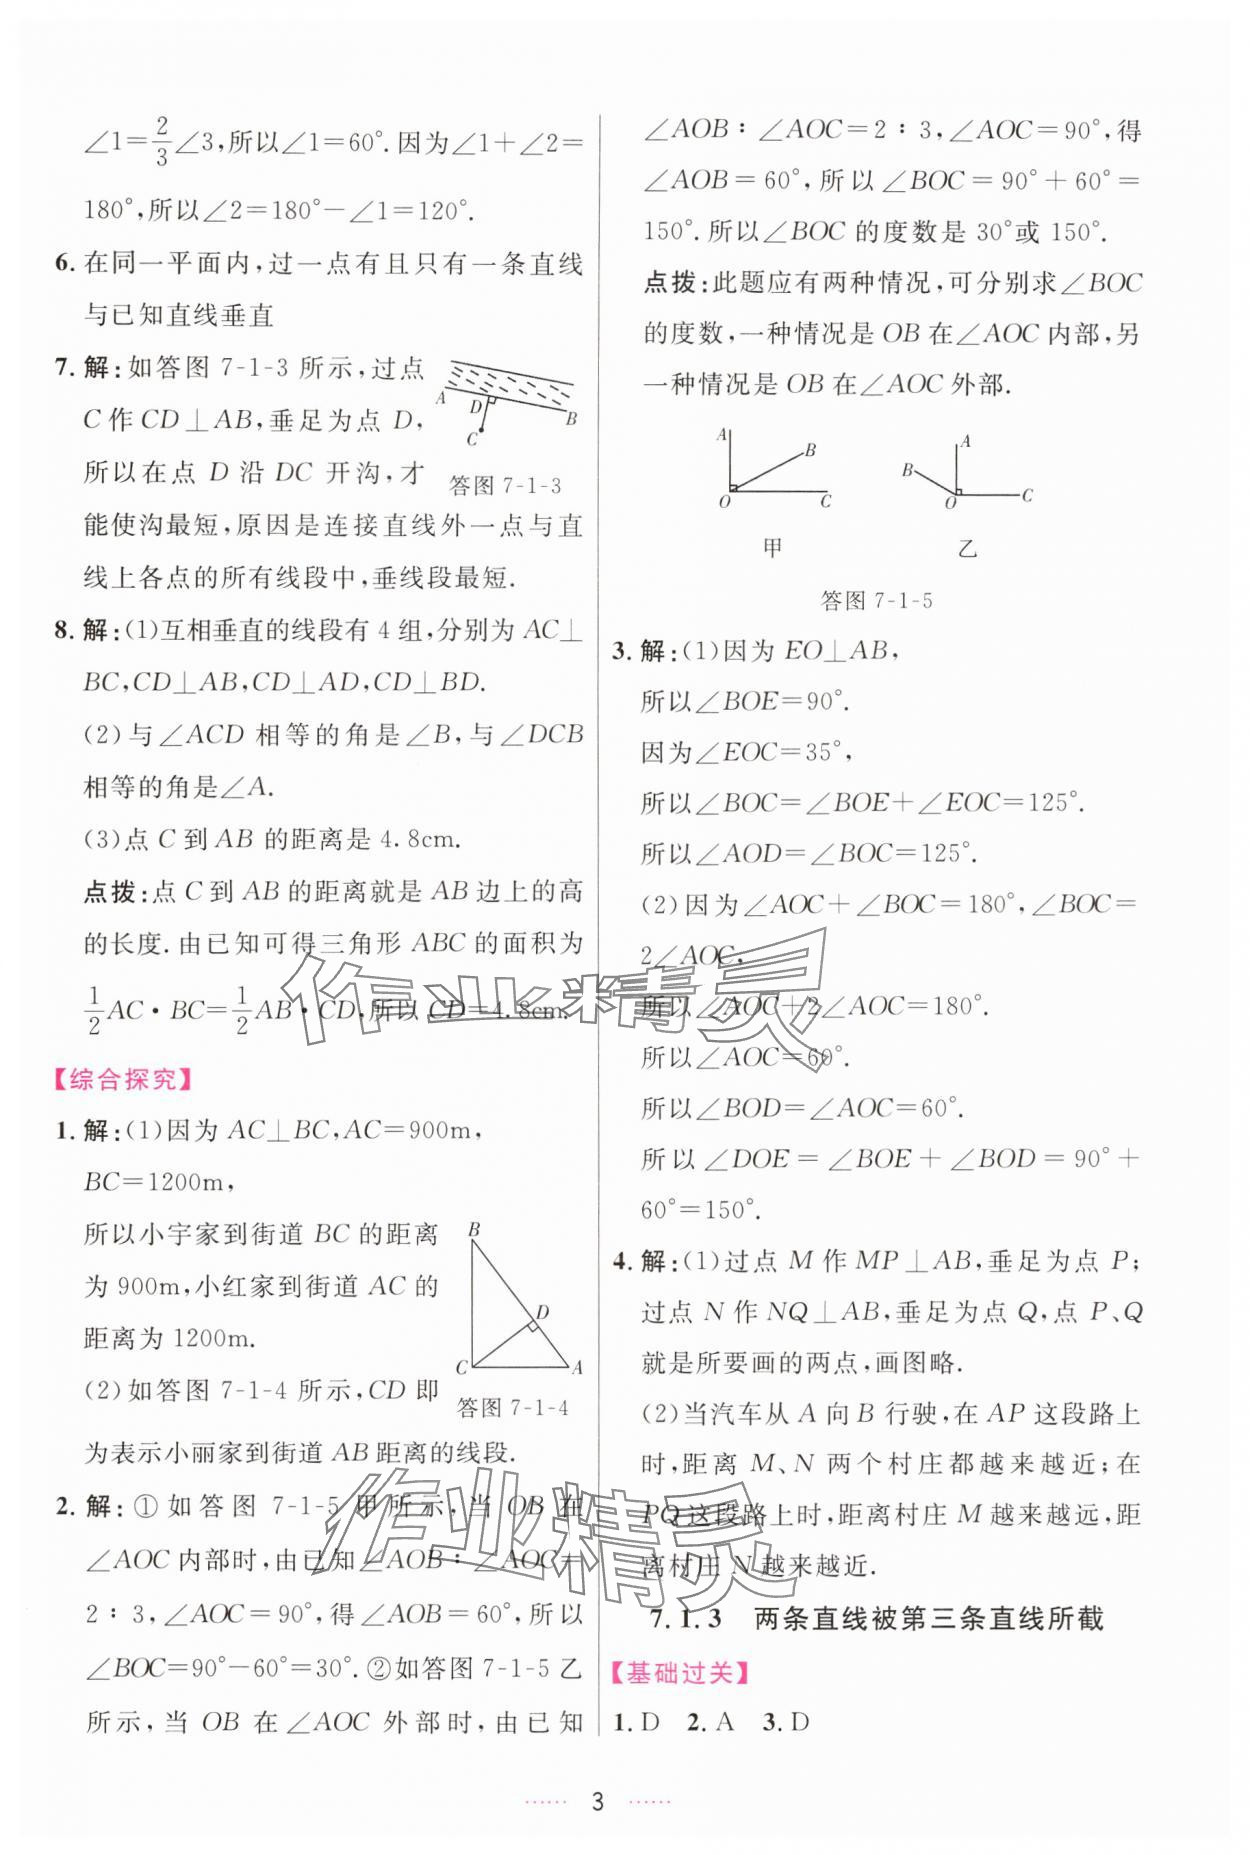 ∠1=2/3∠3,所以∠1=60°.因为∠1+∠2=
180°,所以∠2=180°-∠1=120°.
6. 在同一平面内,过一点有且只有一条直线
与已知直线垂直
7. 解:如答图 7-1-3 所示,过点
C 作 CD⊥AB,垂足为点 D,
所以在点 D 沿 DC 开沟,才
能使沟最短,原因是连接直线外一点与直
线上各点的所有线段中,垂线段最短.
A
D
B
C
答图 7-1-3
8. 解:(1)互相垂直的线段有 4 组,分别为 AC⊥
BC,CD⊥AB,CD⊥AD,CD⊥BD.
(2)与∠ACD 相等的角是∠B,与∠DCB
相等的角是∠A.
(3)点 C 到 AB 的距离是 4.8cm.
点拨:点 C 到 AB 的距离就是 AB 边上的高
的长度.由已知可得三角形 ABC 的面积为
1/2AC·BC=1/2AB·CD,所以 CD=4.8cm.
【综合探究】
1. 解:(1)因为 AC⊥BC,AC=900m,
BC=1200m,
所以小宇家到街道 BC 的距离
为 900m,小红家到街道 AC 的
距离为 1200m.
(2)如答图 7-1-4 所示,CD 即
为表示小丽家到街道 AB 距离的线段.
B
D
C
A
答图 7-1-4
2. 解:①如答图 7-1-5 甲所示,当 OB 在
∠AOC 内部时,由已知∠AOB∶∠AOC=
2∶3,∠AOC=90°,得∠AOB=60°,所以
∠BOC=90°-60°=30°.②如答图 7-1-5 乙
所示,当 OB 在∠AOC 外部时,由已知
∠AOB∶∠AOC=2∶3,∠AOC=90°,得
∠AOB=60°,所以∠BOC=90°+60°=
150°.所以∠BOC 的度数是 30°或 150°.
点拨:此题应有两种情况,可分别求∠BOC
的度数,一种情况是 OB 在∠AOC 内部,另
一种情况是 OB 在∠AOC 外部.
A
B
O
C
甲
A
B
O
C
乙
答图 7-1-5
3. 解:(1)因为 EO⊥AB,
所以∠BOE=90°.
因为∠EOC=35°,
所以∠BOC=∠BOE+∠EOC=125°.
所以∠AOD=∠BOC=125°.
(2)因为∠AOC+∠BOC=180°,∠BOC=
2∠AOC,
所以∠AOC+2∠AOC=180°.
所以∠AOC=60°.
所以∠BOD=∠AOC=60°.
所以∠DOE=∠BOE+∠BOD=90°+
60°=150°.
4. 解:(1)过点 M 作 MP⊥AB,垂足为点 P;
过点 N 作 NQ⊥AB,垂足为点 Q,点 P、Q
就是所要画的两点,画图略.
(2)当汽车从 A 向 B 行驶,在 AP 这段路上
时,距离 M、N 两个村庄都越来越近;在
PQ 这段路上时,距离村庄 M 越来越远,距
离村庄 N 越来越近.
7.1.3 两条直线被第三条直线所截
【基础过关】
1. D 2. A 3. D
作业精灵
作业精灵
······ 3 ······